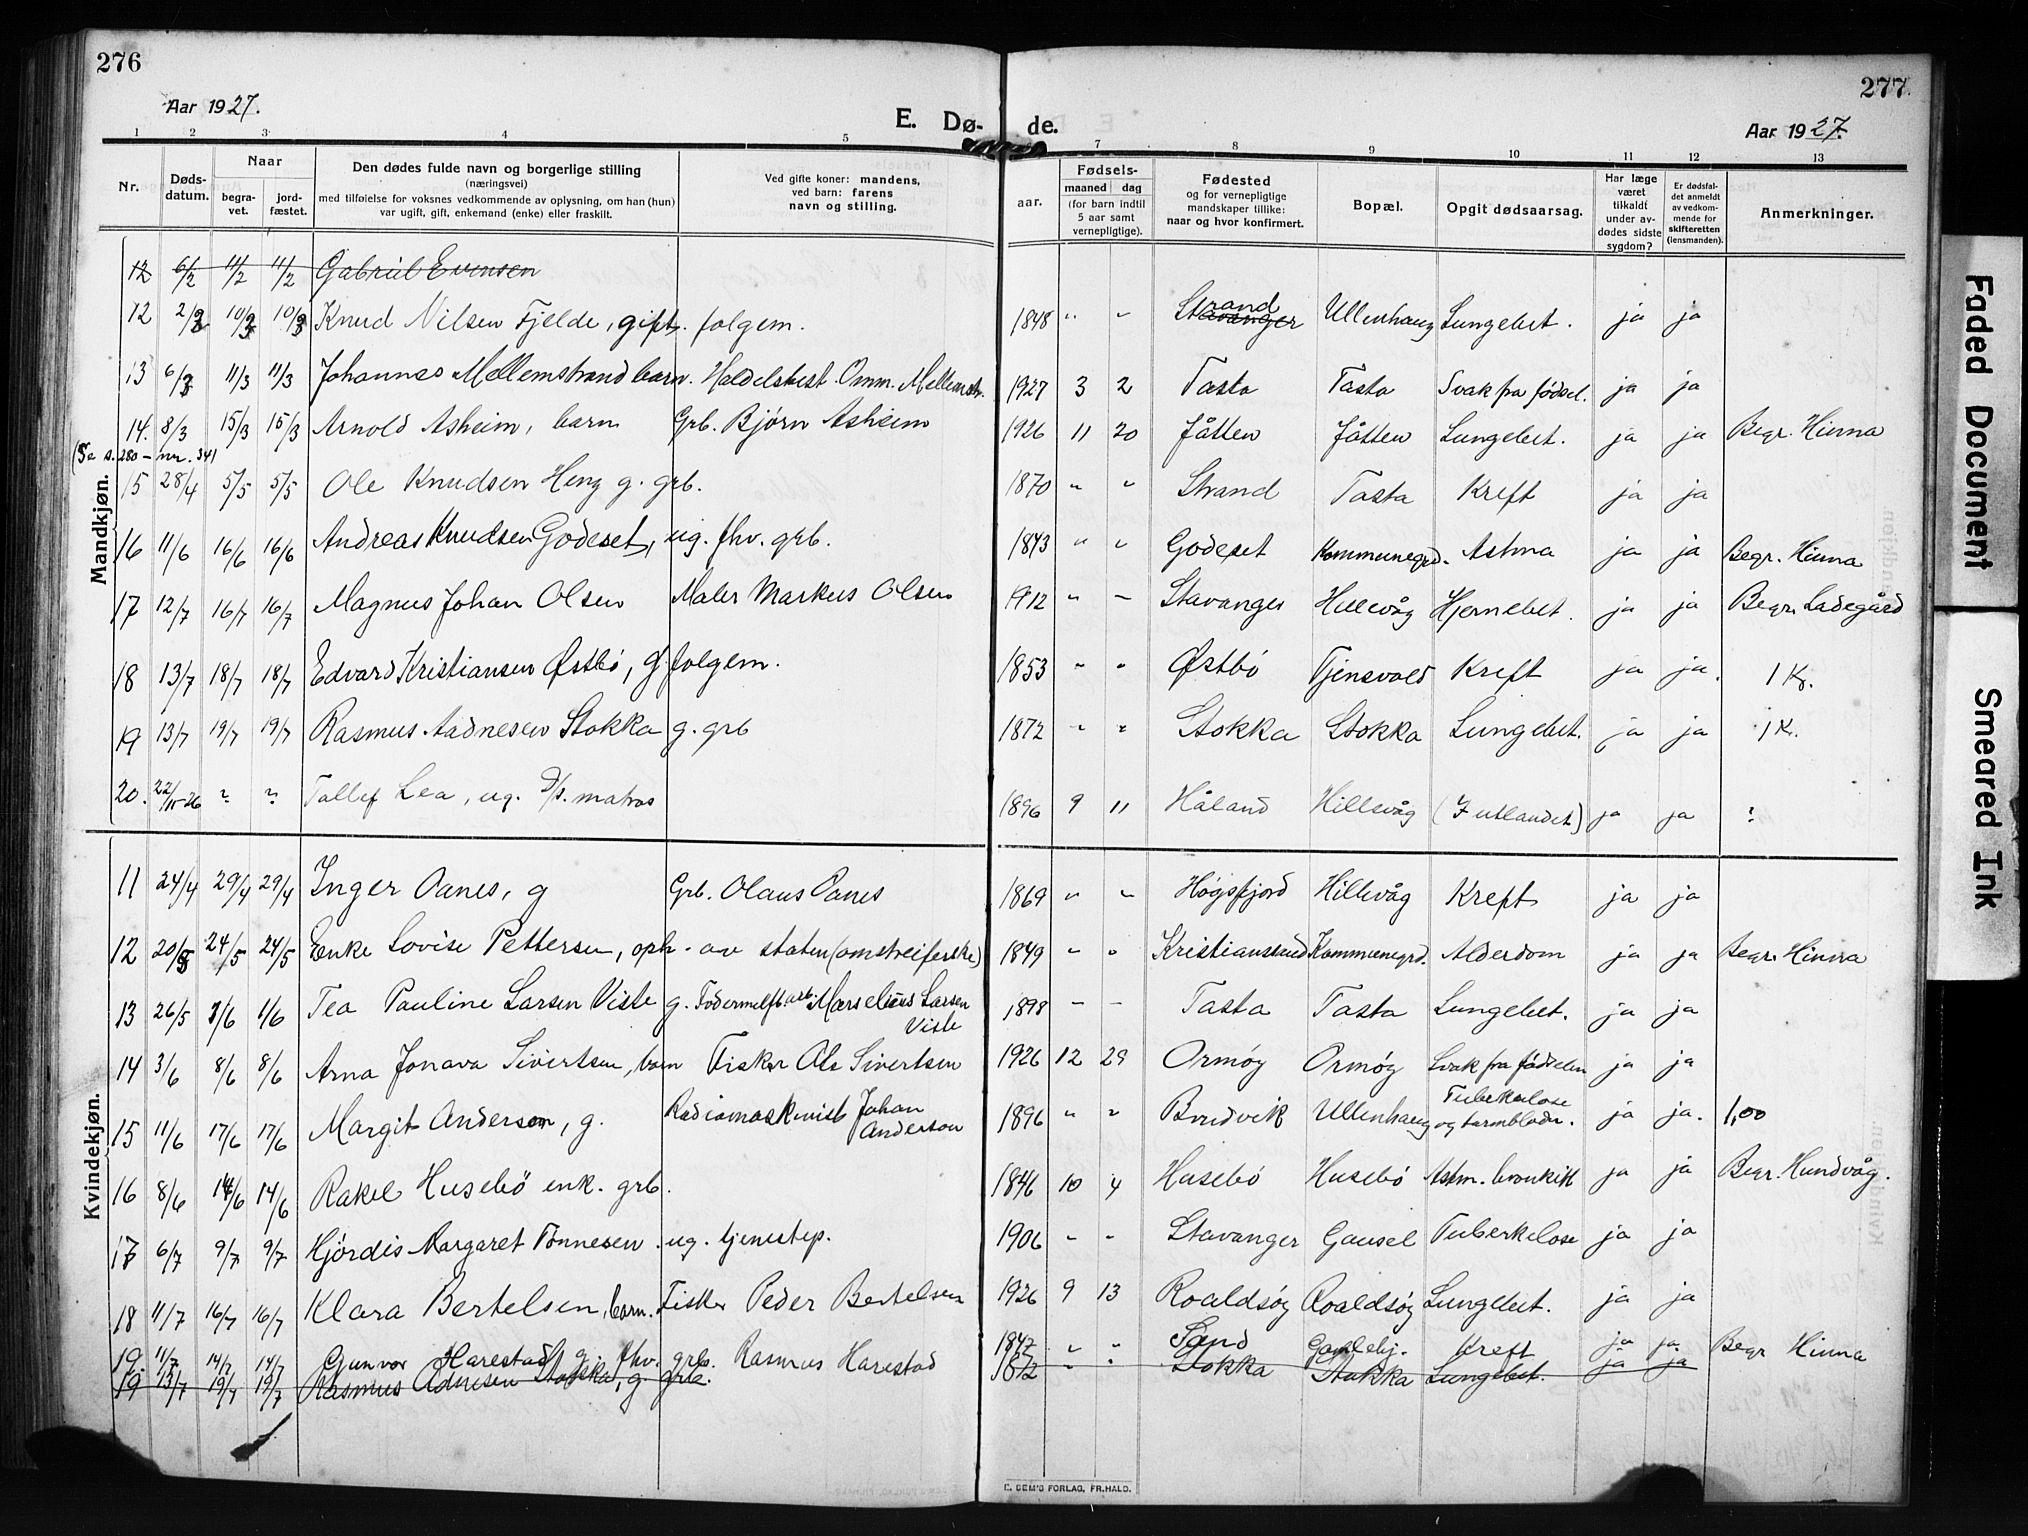 276
277.
Aar 1927.
E. Dø-
de.
Aar 1927.
1 2 3 4 5 7 8 9 10 11 12 13
Nr.
Døds-
datum.
Naar
begra-
vet.
jord-
fæstet.
Den dødes fulde navn og borgerlige stilling
(næringsvei)
med tilføielse for voksnes vedkommende av oplysning, om han (hun)
var ugift, gift, enkemand (enke) eller fraskilt.
Ved gifte koner: mandens,
ved barn: farens
navn og stilling.
aar.
Fødsels-
maaned dag
(for barn indtil
5 aar samt
vernepligtige).
Fødested
og for vernepligtige
mandskaper tillike:
naar og hvor konfirmert.
Bopæl.
Opgit dødsaarsag.
Har læge
været
tilkaldt
under av-
dødes sidste
sygdom?
Er dødsfal-
det anmeldt
av vedkom-
mende for
skifteretten
(lensmanden).
Anmerkninger.
Mandkjøn.
12 6/2 11/2 11/2 Gabriel Evensen
12 2/3 10/3 10/3 Knud Nilsen Fjelde, gift. folgem. 1848 " " Stavanger Strand Ullenhaug Lungebet. ja ja
13 6/3 11/3 11/3 Johannes Mellemstrand barn. Omm. Mellemstr. 1927 3 2 Tasta Tasta Svak fra fødsel. ja ja
14. 8/3 15/3 15/3 Arnold Asheim, barn Grb. Bjørn Asheim 1926 11 20 Jåtten Jåtten Lungebet. ja ja Begr. Hinna
(Se s. 280 - nr. 34)
15 28/4 5/5 5/5 Ole Knudsen g. grb. 1870 " " Strand Tasta Kreft ja ja
16 11/6 16/6 16/6 Andreas Knudsen Godeset, ug. fhv. grb. 1843 " " Godeset Kommunegrd. Astma ja ja Begr. Hinna
17 12/7 16/7 16/7 Magnus Johan Olsen Maler Markus Olsen 1912 " - Stavanger Hillevåg Hjernebet. ja ja Begr. Ladegård
18 13/7 18/7 18/7 Edvard Kristiansen Østbö, g. folgem. 1853 " " Østbö Tjensvold Kreft ja ja. 1 Kr.
19 13/7 19/7 19/7 Rasmus Aadnesen Stokka g. grb 1872 " " Stokka Stokka Lungebet. ja ja 1 K.
20. 22/11-26 ? ? Tollef Lea, ug. matros 1896 9 11 Håland Hillevåg (I utlandet) ja ja ?
Kvindekjøn.
11 24/4 29/4 29/4 Inger Oanes, g Grb. Olaus Oanes 1869 " " Högsfjord Hillevåg Kreft ja ja
12 20/5 24/5 24/5 Enke Lovise Pettersen, oph. av staten (omstreiferske) 1849 " " Kristianssund Kommunegrd. Alderdom ja ja Begr. Hinna
13 26/5 1/6 1/6 Tea Pauline Larsen Viste g. arb. Marselius Larsen Viste 1898 - - Tasta Tasta Lungebet. ja ja
14 3/6 8/6 8/6 Arna Jonava Sivertsen, barn Fisker Ole Sivertsen 1926 12 29 Ormöy Ormöy Svak fra fødselen ja ja
15 11/6 17/6 17/6 Margit Anderson, g. Radiomaskinist Johan Anderson 1896 " " Ullenhaug Tuberkulose og tarmblødn. ja ja. 1,00
16 8/6 14/6 14/6 Rakel Husebö enk. grb. 1846 10 4 Husebö Husebö Astm. bronkitt ja ja Begr. Hundvåg.
17 6/7 9/7 9/7 Hjördis Margaret Tönnesen. ug. tjenestep. 1906 " " Stavanger Gausel Tuberkelose ja ja
18 11/7 16/7 16/7 Klara Bertelsen, barn. Fisker Peder Bertelsen 1926 9 13 Roaldsöy Roaldsöy Lungebet. ja ja
19. 11/7 14/7 14/7 Gunvor Harestad g. fhv. grb. Rasmus Harestad 1847 " " Sand Gamlehj. Kreft ja ja Begr Hinna
19 13/7 19/7 19/7 Rasmus Adnesen Stokka, g grb. 1872 " " Stokka Stokka Lungebet. ja ja
E. SEM'S FORLAG, FR.HALD.
Faded Document
Smeared Ink